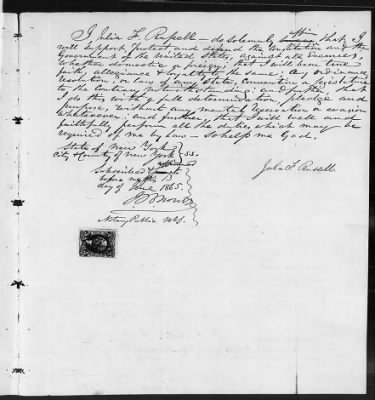 affirm
I Julia F. Russell — do solemnly swear that I
will support, protect and defend the Constitution and the
Government of the United States, against all enemies,
whether domestic or foreign; that I will bear true
faith, allegiance & loyalty to the same; any ordinance,
resolution, or law of any State, Convention or Legislature
to the contrary notwithstanding; and further; that
I do this with a full determination, pledge and
purpose, without any mental reservation or evasion
whatsoever; and further, that I will well and
faithfully perform all the duties, which may be
required of me by Law — So help me God.
State of New York
City & County of New York } SS.
affirmed
Subscribed &
before me this 13
day of June 1865.
Notary Public N.Y.
Julia F. Russell